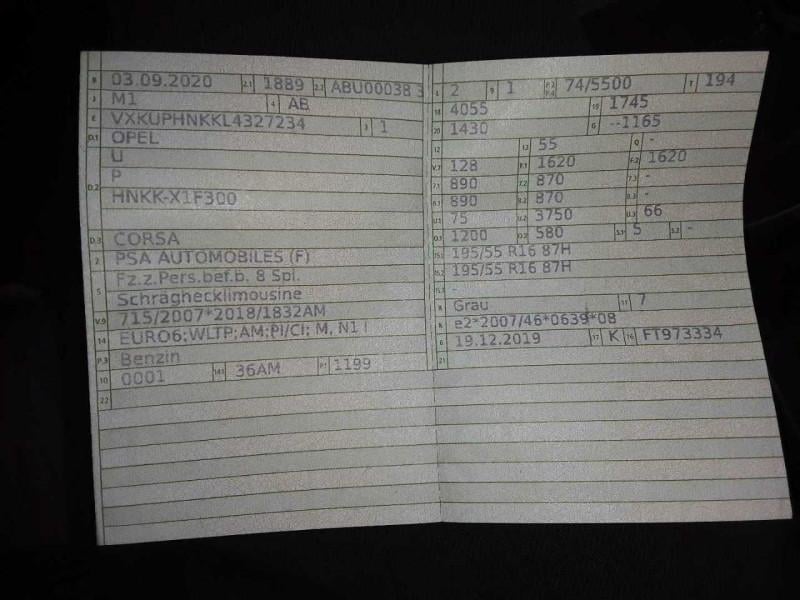 B 03.09.2020 2.1 1889 2.2 ABU00038 3
J M1 4 AB
E VXKUPHNKKL4327234 3 1
D.1 OPEL
D.2 U
P
HNKK-X1F300
D.3 CORSA
2 PSA AUTOMOBILES (F)
5 Fz.z.Pers.bef.b. 8 Spl.
Schräghecklimousine
V.9 715/2007*2018/1832AM
14 EURO6;WLTP;AM;PI/CI; M, N1 I
P.3 Benzin
10 0001 14.1 36AM P.1 1199
22
L 2 9 1 P.2 P.4 74/5500 T 194
18 4055 19 1745
20 1430 G --1165
12 13 55 Q -
V.7 128 F.1 1620 F.2 1620
7.1 890 7.2 870 7.3 -
8.1 890 8.2 870 8.3 -
U.1 75 U.2 3750 U.3 66
O.1 1200 O.2 580 S.1 5 S.2 -
15.1 195/55 R16 87H
15.2 195/55 R16 87H
15.3 -
R Grau 11 7
K e2*2007/46*0639*08
6 19.12.2019 17 K 16 FT973334
21